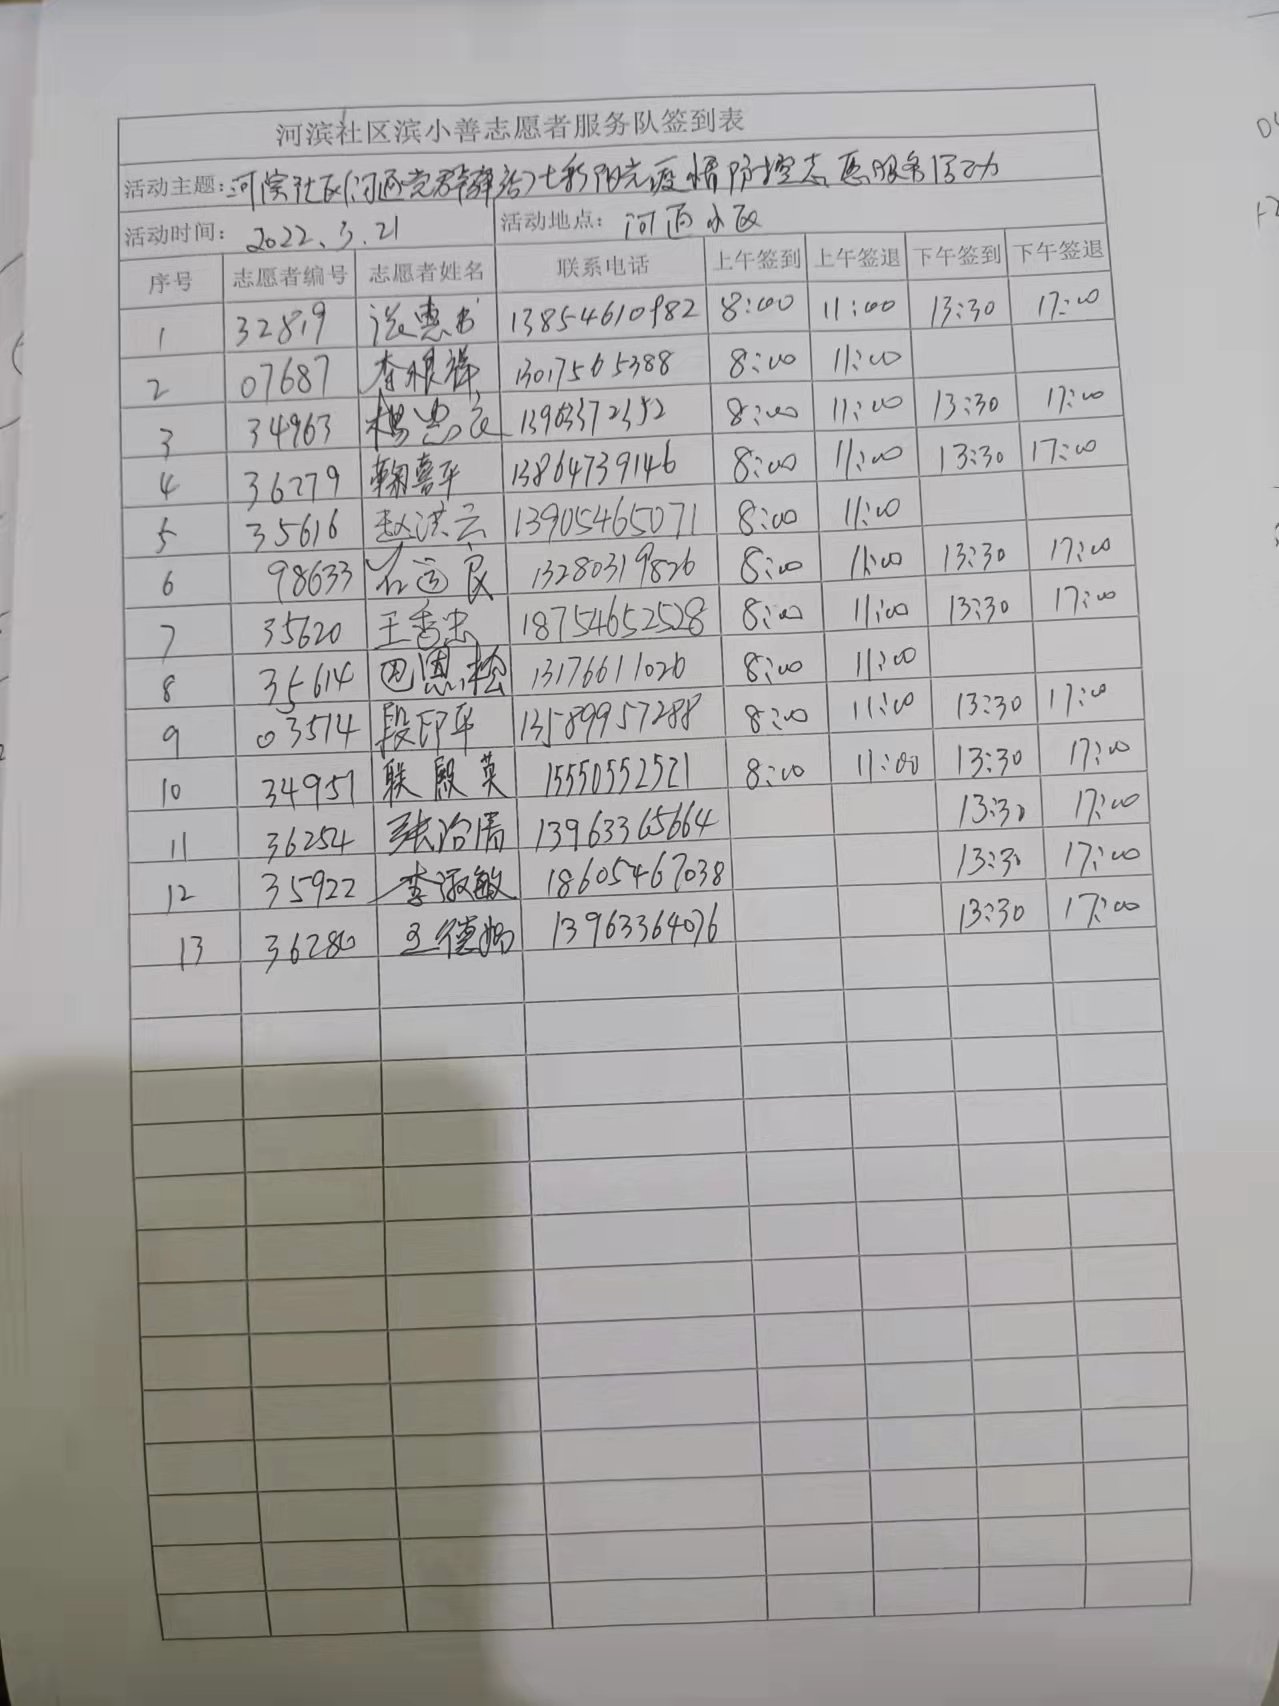 河滨社区滨小善志愿者服务队签到表
活动主题:河滨社区(河西党群驿站)七彩阳光疫情防控志愿服务活动
活动时间: 2022.3.21 活动地点: 河西小区
序号 志愿者编号 志愿者姓名 联系电话 上午签到 上午签退 下午签到 下午签退
1 32819 惠 13854610982 8:00 11:00 13:30 17:00
2 07687 李根祥 13017565388 8:00 11:00
3 34963 杨忠 13963372352 8:00 11:00 13:30 17:00
4 36279 鞠喜平 13864739146 8:00 11:00 13:30 17:00
5 35616 赵洪云 13905465071 8:00 11:00
6 98633 石运良 13280319826 8:00 11:00 13:30 17:00
7 35620 王秀忠 18754652528 8:00 11:00 13:30 17:00
8 35614 巴恩松 13176611026 8:00 11:00
9 03514 段印平 13589957288 8:00 11:00 13:30 17:00
10 34957 殿英 15550552521 8:00 11:00 13:30 17:00
11 36254 张治清 13963365664 13:30 17:00
12 35922 李淑敏 18605467038 13:30 17:00
13 36280 王德 13963364076 13:30 17:00